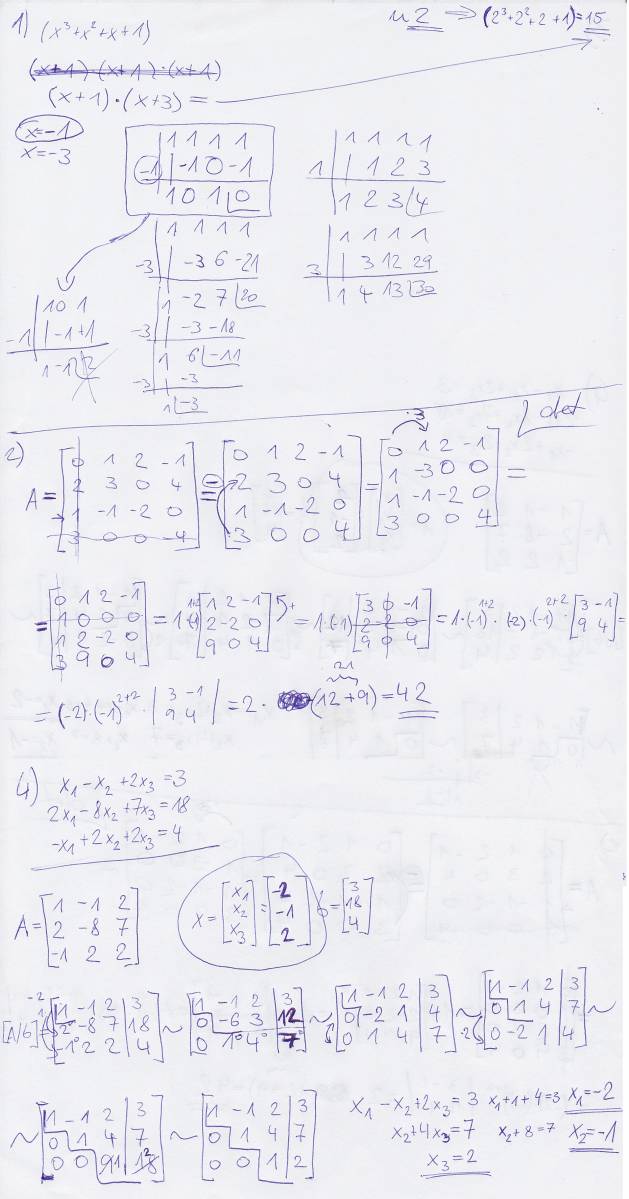 1) (x³+x²+x+1)
u 2 ⇒ (2³+2²+2+1)=15
(x+1)·(x+1)·(x+1)
(x+1)·(x+3)=
x=-1
x=-3
1 1 1 1
-1 | -1 0 -1
1 0 1 |0
1 1 1 1
1 | 1 2 3
1 2 3 |4
1 1 1 1
-3 | -3 6 -21
1 -2 7 |20
-3 | -3 -18
1 6 |-11
-3 | -3
1 |-3
1 1 1 1
3 | 3 12 29
1 4 13 |30
1 0 1
-1 | -1 +1
1 -1 |2
2) det
A = [0 1 2 -1; 2 3 0 4; 1 -1 -2 0; 3 0 0 -4] = [0 1 2 -1; 2 3 0 4; 1 -1 -2 0; 3 0 0 4] = ·3 [0 1 2 -1; 1 -3 0 0; 1 -1 -2 0; 3 0 0 4] =
= [0 1 2 -1; 1 0 0 0; 1 2 -2 0; 3 9 0 4] = 1·(-1)¹⁺² [1 2 -1; 2 -2 0; 9 0 4] + = 1·(-1) [3 0 -1; 2 -2 0; 9 0 4] = 1·(-1)¹⁺²·(-2)·(-1)²⁺²·[3 -1; 9 4] =
= (-2)·(-1)²⁺²·|3 -1; 9 4| = 2·(12+9) = 42
21
4) x₁-x₂+2x₃=3
2x₁-8x₂+7x₃=18
-x₁+2x₂+2x₃=4
A = [1 -1 2; 2 -8 7; -1 2 2]
x = [x₁; x₂; x₃] = [-2; -1; 2] b = [3; 18; 4]
[A/b] = [1 -1 2 | 3; 2 -8 7 | 18; -1 2 2 | 4] ~ [1 -1 2 | 3; 0 -6 3 | 12; 0 1 4 | 7] ~ [1 -1 2 | 3; 0 -2 1 | 4; 0 1 4 | 7] ~ [1 -1 2 | 3; 0 1 4 | 7; 0 -2 1 | 4] ~
~ [1 -1 2 | 3; 0 1 4 | 7; 0 0 9 1 | 18 2] ~ [1 -1 2 | 3; 0 1 4 | 7; 0 0 1 | 2]
x₁-x₂+2x₃=3 x₁+1+4=3 x₁=-2
x₂+4x₃=7 x₂+8=7 x₂=-1
x₃=2